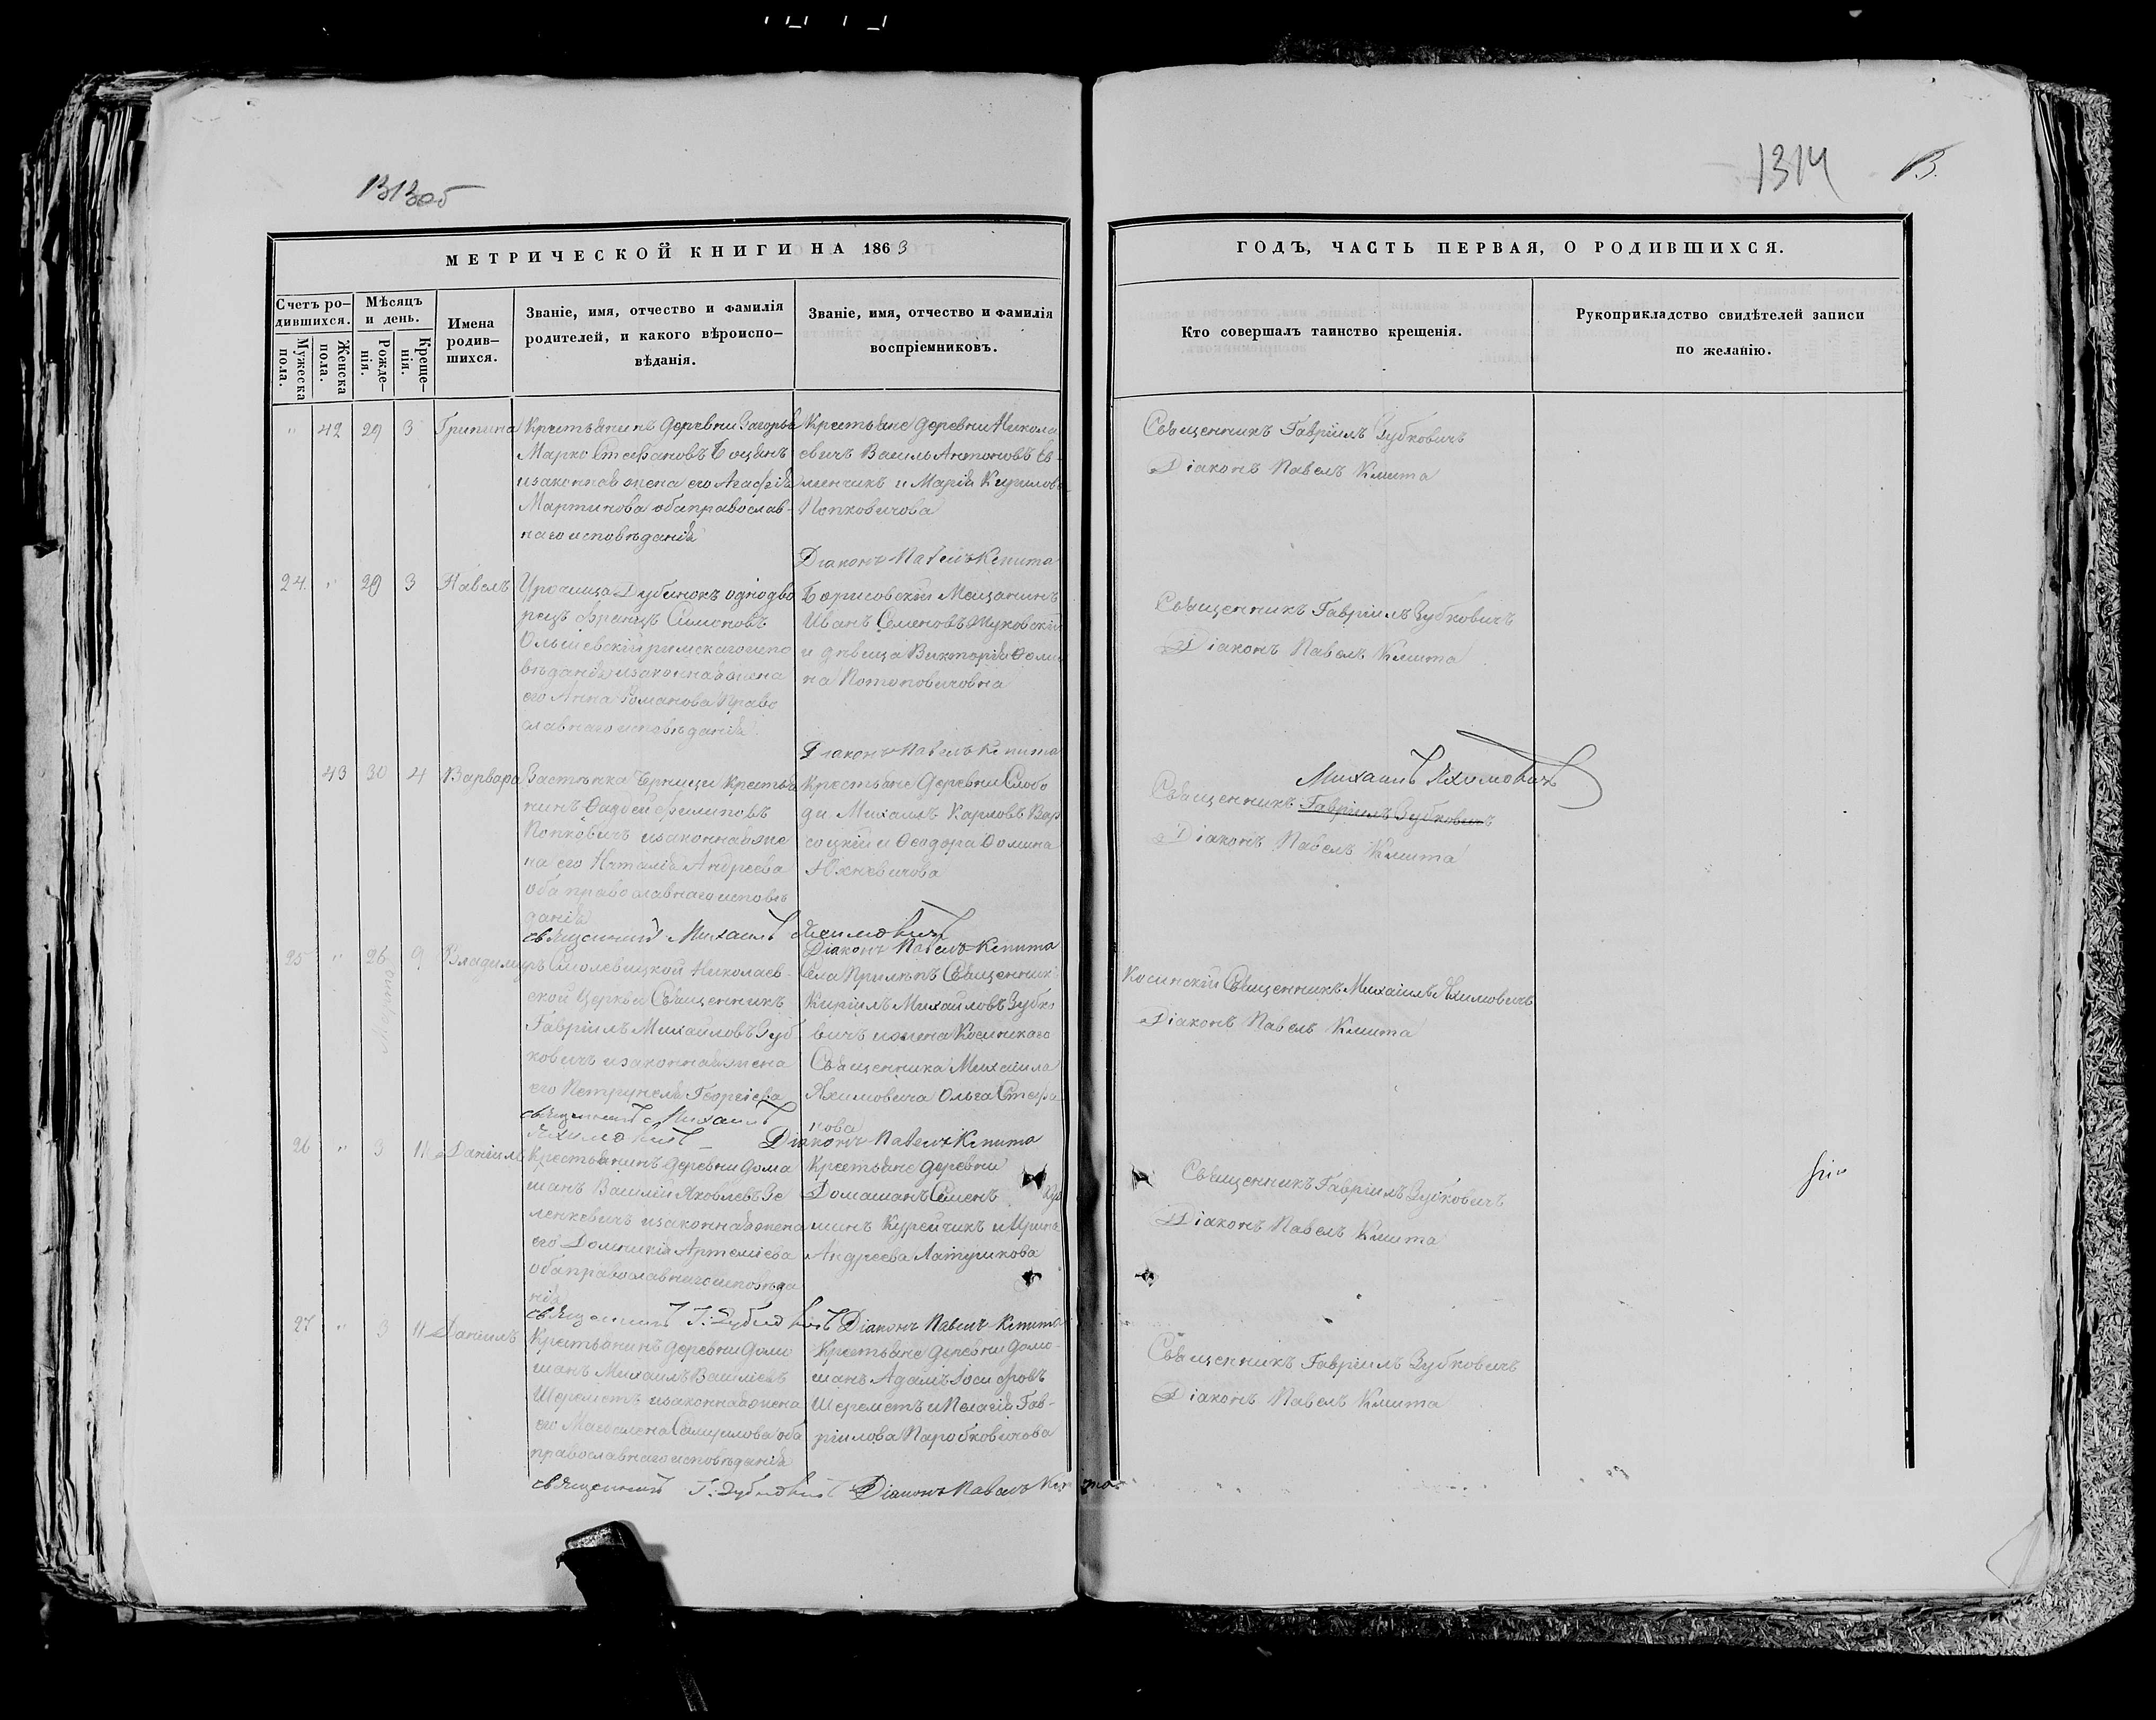 1313об
1314
13.
МЕТРИЧЕСКОЙ КНИГИ НА 1863
ГОДЪ, ЧАСТЬ ПЕРВАЯ, О РОДИВШИХСЯ.
Счетъ ро-
дившихся.
Мужеска
пола.
Женска
пола.
Мѣсяцъ
и день.
Рожде-
нія.
Креще-
нія.
Имена
родив-
шихся.
Званіе, имя, отчество и фамилія
родителей, и какого вѣроиспо-
вѣданія.
Званіе, имя, отчество и фамилія
воспріемниковъ.
Кто совершалъ таинство крещенія.
Рукоприкладство свидѣтелей записи
по желанію.
" 42 29 3 Грипина
Крестьянинъ деревни Загорья
Марко Стефановъ
изаконная жена его Агафія
Мартинова обаправослав-
наго исповѣданія
Крестьяне деревни Никола
евичъ Василь Антоновъ Ев-
менчикъ и Марія Кирилова
Попковичова
Діаконъ Павелъ Кмита
Священникъ Гавріилъ Зубковичъ
Діаконъ Павелъ Кмита
24. " 29 3 Павелъ
Урочища Дубинокъ однодво
рецъ Францъ Симоновъ
Ольшевскій римскагоиспо
вѣданія изаконная жена
его Анна Романова Право
славнаго исповѣданія
Борисовскій Мещанинъ
Иванъ Семеновъ Жуковскій
и дѣвица Викторія Ѳоми
на Потоповичовна
Діаконъ Павелъ Кмита
Священникъ Гавріилъ Зубковичъ
Діаконъ Павелъ Кмита
43 30 4 Варвара
Застѣнка Крестья
нинъ Ѳаддей Филиповъ
Попковичъ изаконная же
на его Наталія Андреева
оба православнаго исповѣ
данія
священникъ Михаилъ Яхимовичъ
Крестьяне деревни Слобо
ди Михаилъ Карловъ Вар
соцкій и Ѳеодора Ѳомина
Юхневичова
Діаконъ Павелъ Кмита
Михаилъ Яхимовичъ
Священникъ Гавріилъ Зубковичъ
Діаконъ Павелъ Кмита
25 " 26 9 Владимиръ
Смолевицкой Николаев-
ской Церкви Священникъ
Гавріилъ Михайловъ Зуб
ковичъ изаконная жена
его Петрунеля Георгіева
священникъ Михаилъ
Яхимовичъ
Села Прилепъ Священникъ
Кириилъ Михайловъ Зубко
вичъ и жена Косинскаго
Священника Михаила
Яхимовича Ольга Стефа
нова
Діаконъ Павелъ Кмита
Косинскій Священникъ Михаилъ Яхимовичъ
Діаконъ Павелъ Кмита
26 " 3 11 Даніилъ
Крестьянинъ деревни Дома
шанъ Василій Яковлевъ Зе
ленкевичъ изаконная жена
его Домникія Артеміева
оба православнаго исповѣда
нія
священникъ Г: Зубковичъ
Крестьяне деревни
Домашанъ Семенъ Кузь
минъ Курейчикъ и Ирина
Андреева Латушкова
Діаконъ Павелъ Кмита
Священникъ Гавріилъ Зубковичъ
Діаконъ Павелъ Кмита
27 " 3 11 Даніилъ
Крестьянинъ деревни Дома
шанъ Михаилъ Василіевъ
Шереметъ изаконная жена
его Магдалена Самуилова оба
православнаго исповѣданія
священникъ Г: Зубковичъ
Крестьяне деревни Дома-
шанъ Адамъ Іосифовъ
Шереметъ и Пелагія Гав-
ріилова Паробковичова
Діаконъ Павелъ Кмита
Священникъ Гавріилъ Зубковичъ
Діаконъ Павелъ Кмита